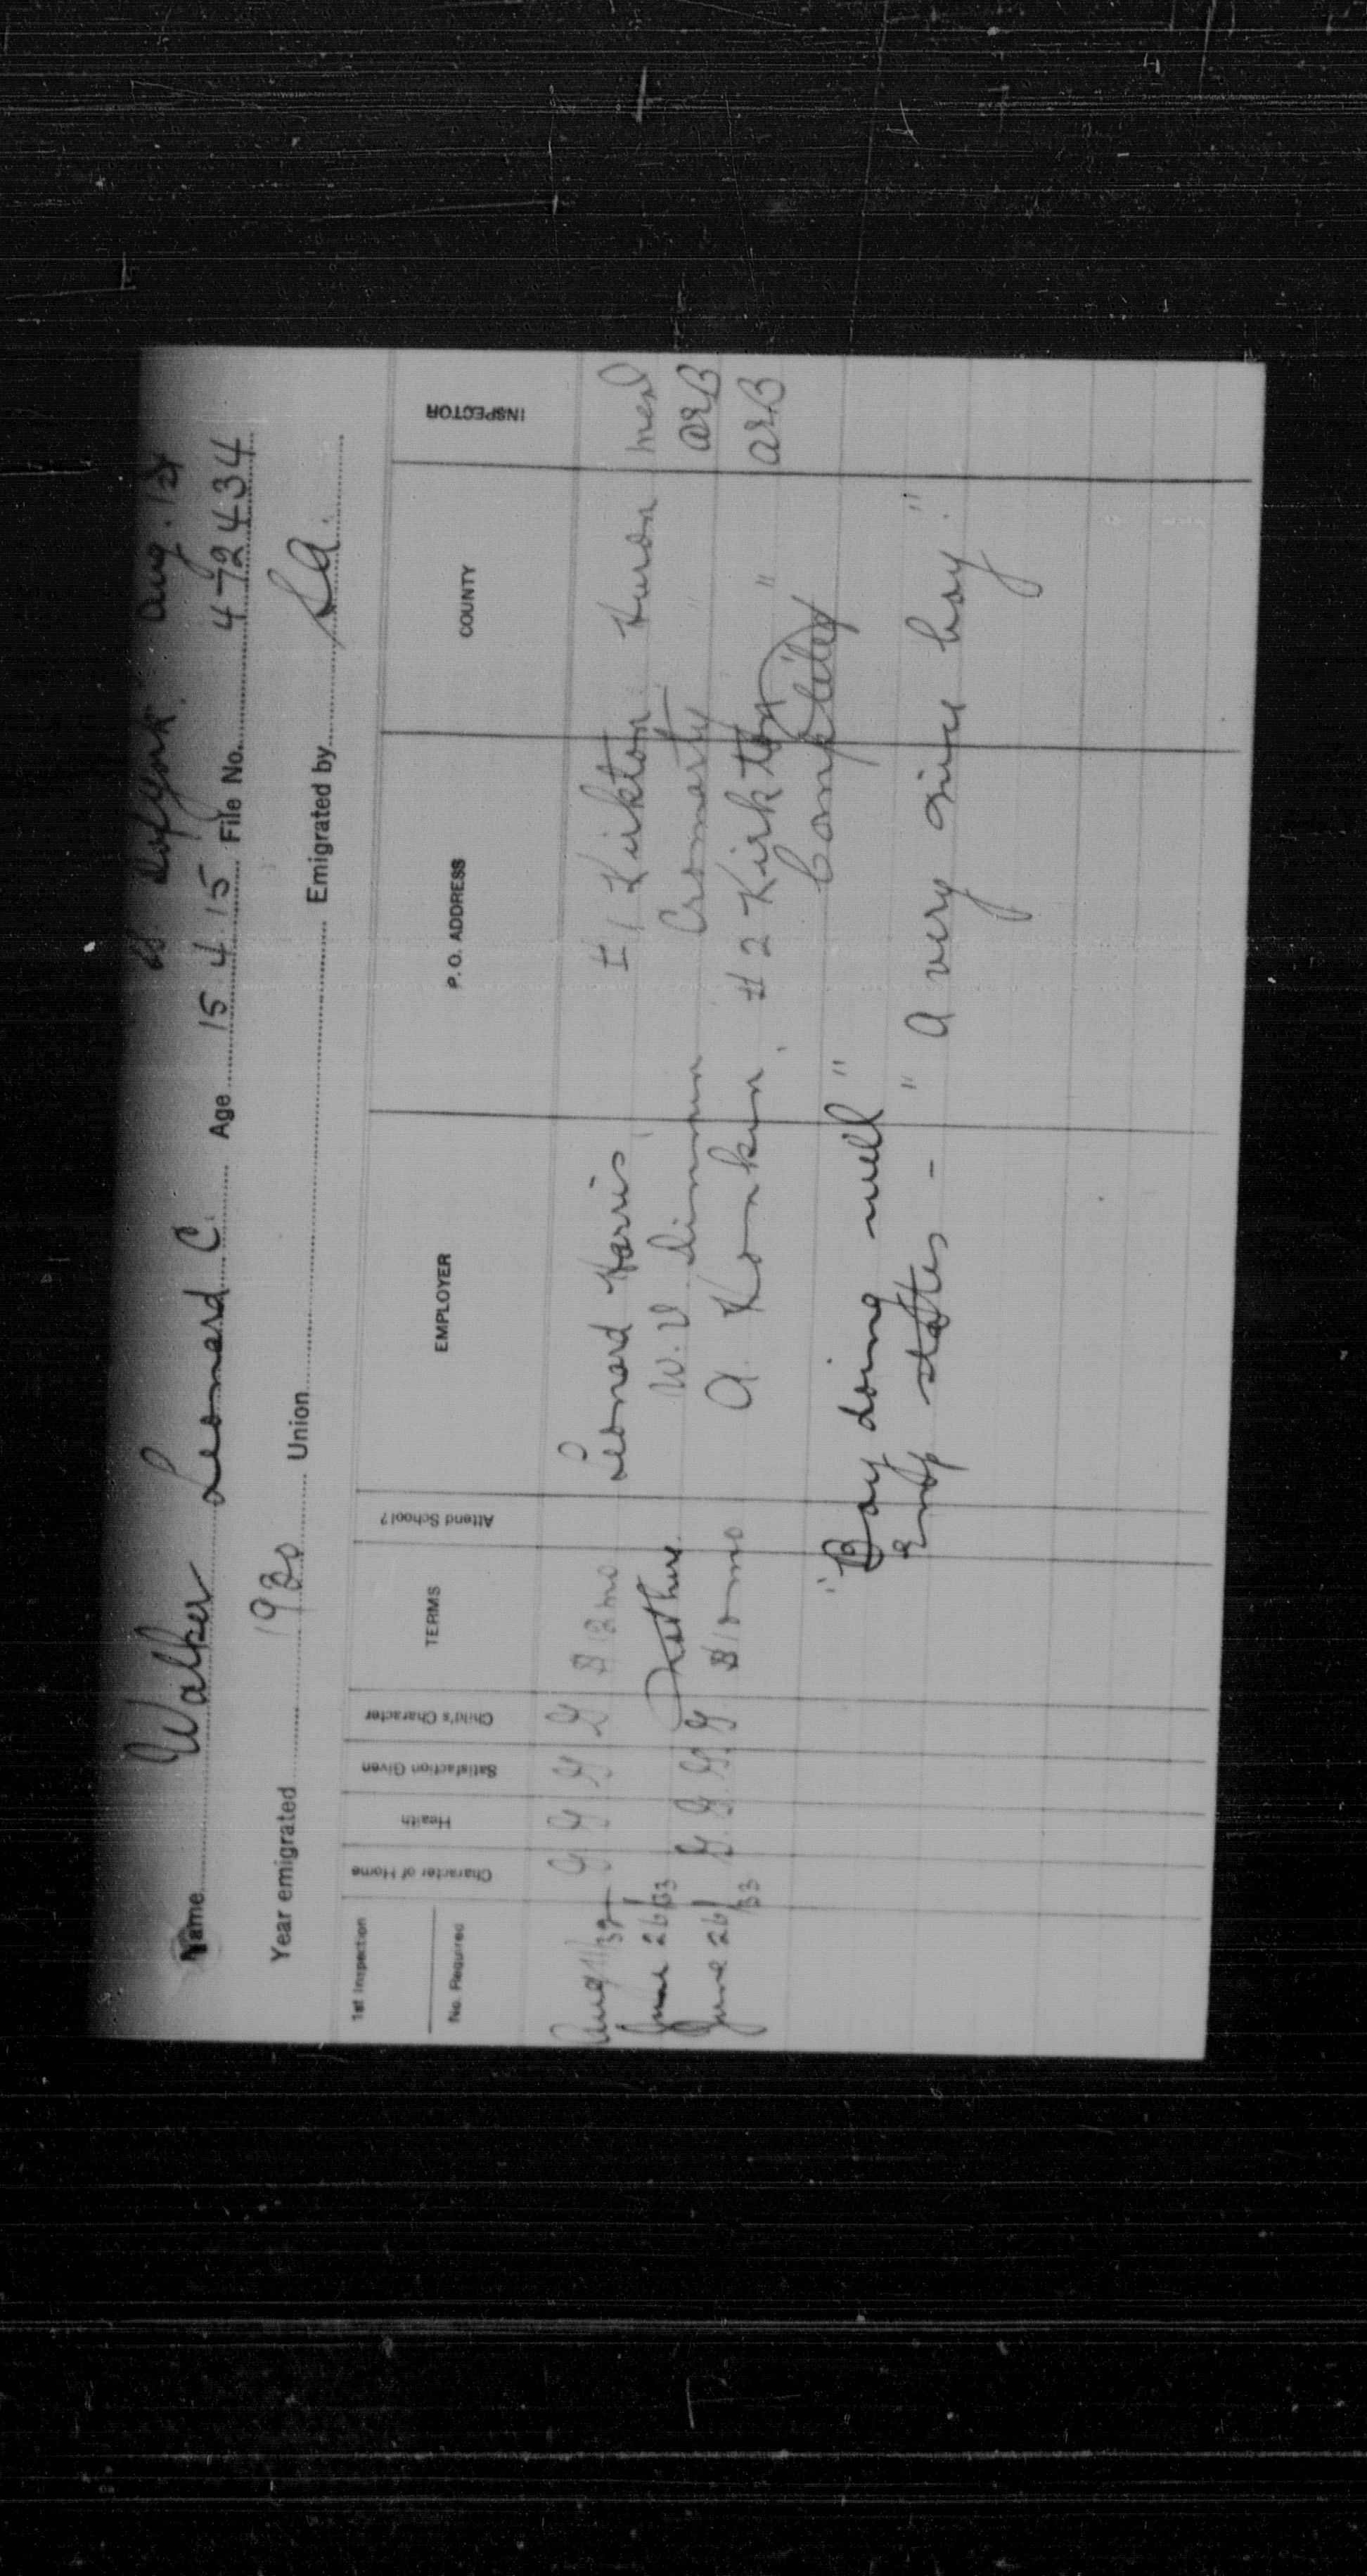 SS Dof York Aug. 1st
Name Walker Leonard C. Age 15 4.15 File No. 472434
Year emigrated 1930 Union Emigrated by S.A.
1st Inspection
No. Required Character of Home Health Satisfaction Given Child's Character TERMS Attend School? EMPLOYER P. O. ADDRESS COUNTY INSPECTOR
Aug 11/32 G G G G $12 mo Leonard Harris #1 Kirkton Huron
June 26/33 W. V. Cromarty " ARB
June 26/33 G G G G $10 mo A. #2 Kirkton " ARB
Completed
"Boy doing well"
Emp states - "A very nice boy."